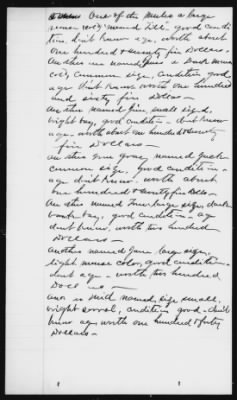 One of the mules a large
mouse cold, named Till, good condi
tion, dont know age, worth about
one hundred & seventy five Dollars -
Another one named a Dark mouse
cold, common size, condition good
age dont know worth one hundred
and sixty five Dollars -
Another named Jim small sized,
bright bay, good condition - dont know
age - worth about one hundred & seventy
five Dollars -
Another iron gray, named Jack
common size, good condition -
age dont know - worth about
one hundred & seventy five Dolls -
Another named large size, dark
bay, good condition - age
dont know, worth two hundred
Dollars -
Another named Jane large size,
light mouse color, good condition -
dont age - worth two hundred
Dollars -
named, size small,
bright sorrel, condition good - dont
know age worth one hundred & forty
Dollars -